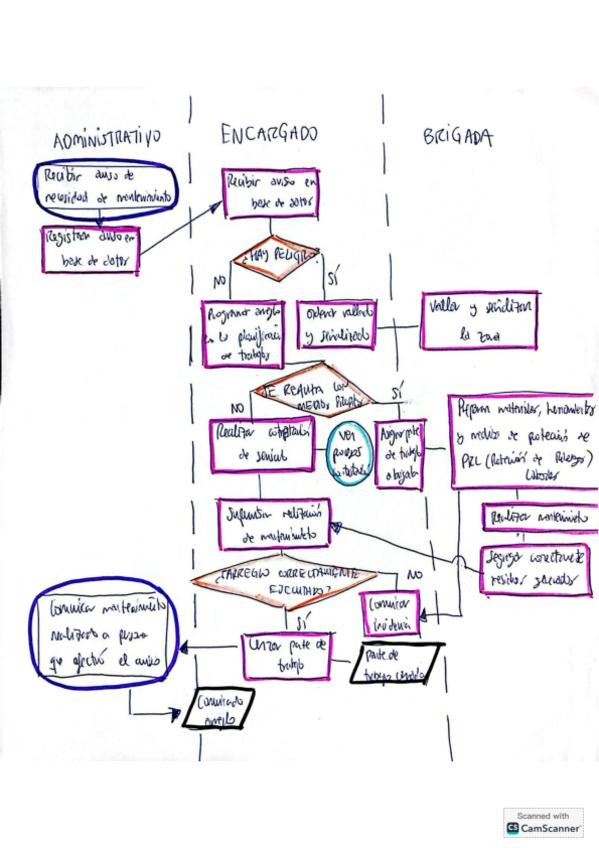 ADMINISTRATIVO
ENCARGADO
BRIGADA
Recibir aviso de
necesidad de mantenimiento
Registrar aviso en
base de datos
Recibir aviso en
base de datos
¿HAY PELIGRO?
NO
SÍ
Programar arreglo
en la planificación
de trabajos
Ordenar vallado
y señalizado
Vallar y señalizar
la zona
SE REALIZA CON
MEDIOS PROPIOS
NO
SÍ
Realizar contratación
de servicio
Ver
proceso
Asignar parte
de trabajo
a brigada
Preparar materiales, herramientas
y medios de protección de
PRL (Prevención de Riesgos)
Laborales
Realizar mantenimiento
Supervisar realización
de mantenimiento
Segregar correctamente
residuos generados
¿ARREGLO CORRECTAMENTE
EJECUTADO?
NO
SÍ
Comunicar
incidencia
Comunicar mantenimiento
realizado a persona
que efectuó el aviso
Cerrar parte de
trabajo
Parte de
trabajo cerrado
Comunicado
arreglo
Scanned with
CS CamScanner